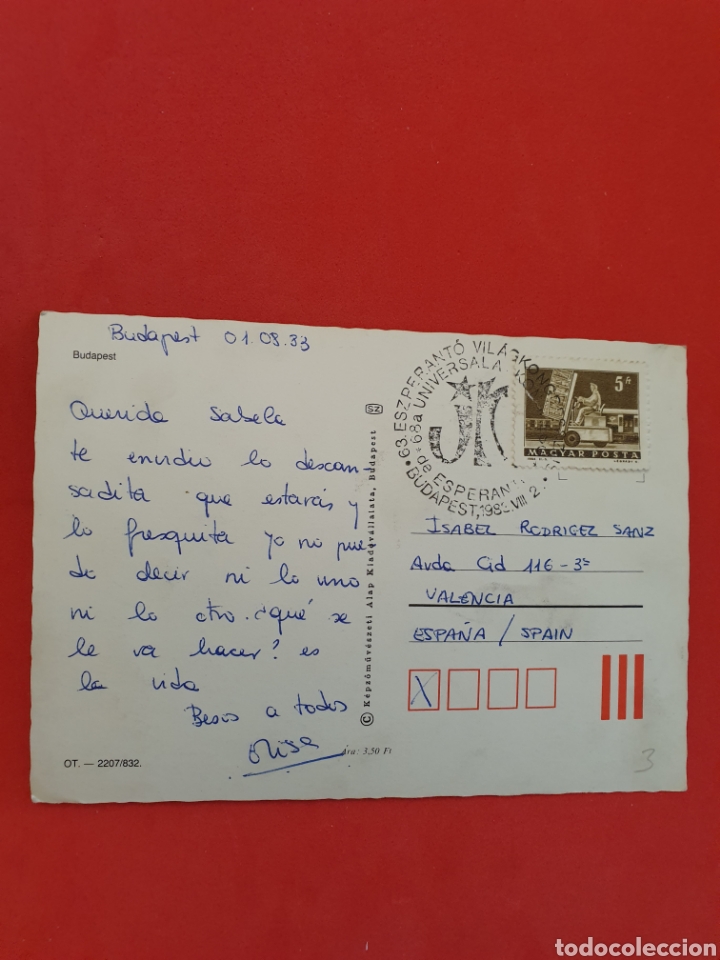 Budapest 01.08.83
Budapest
Querida Sabela
te envidio lo descan-
sadita que estarás y
lo fresquita yo no pue-
do decir ni lo uno
ni lo otro. ¿qué se
le va hacer? es
la vida
Besos a todos
Elisa
OT. — 2207/832.
Ára: 3.50 Ft
SZ
© Képzőművészeti Alap Kiadóvállalata, Budapest
63. ESZPERANTÓ VILÁGKON
68a UNIVERSALA
de ESPERAN
BUDAPEST, 1983. VIII. 2.
5 Ft
MAGYAR POSTA
ISABEL RODRIGEZ SANZ
Avda Cid 116-3ª
VALENCIA
ESPAÑA / SPAIN
X
3
todocoleccion